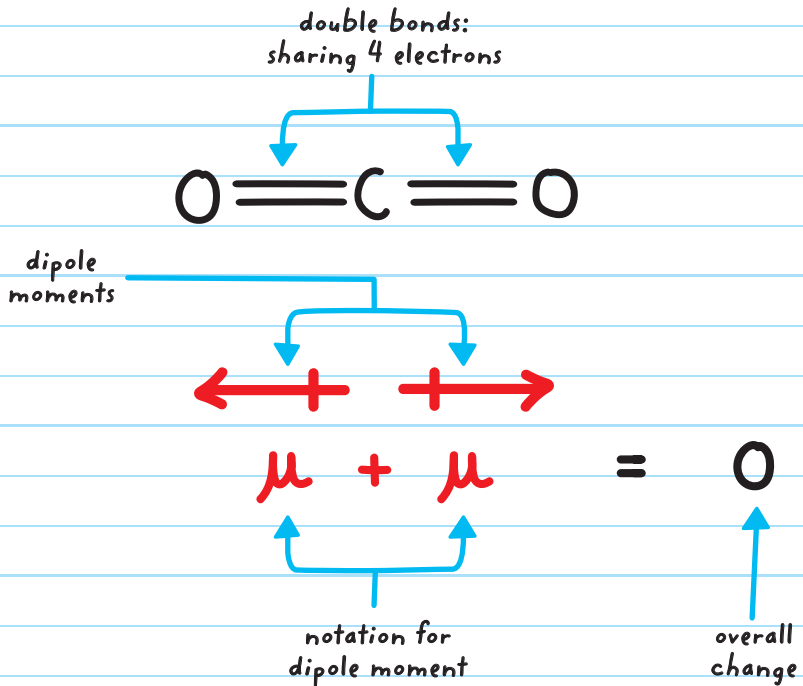 double bonds:
sharing 4 electrons
O=C=O
dipole
moments
μ + μ = 0
notation for
dipole moment
overall
change